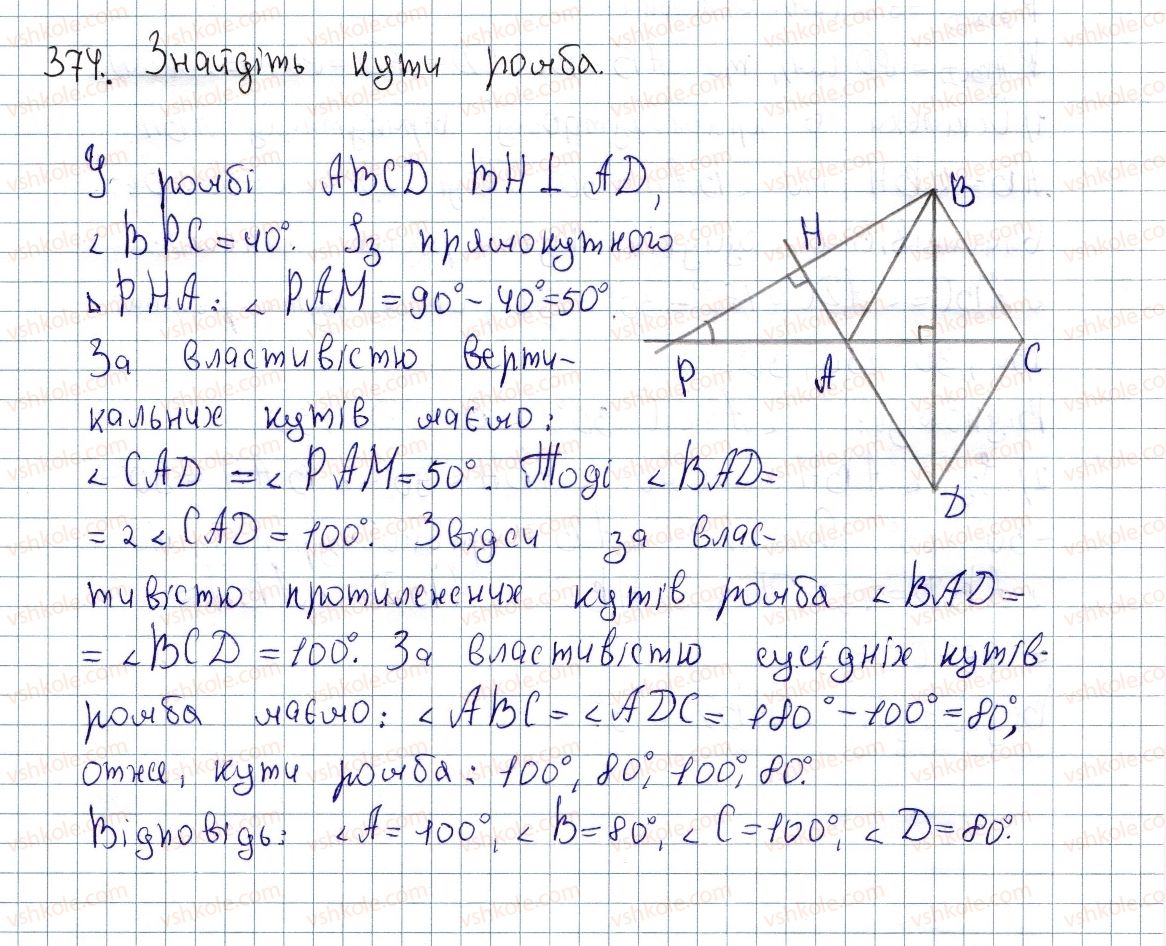 374. Знайдіть кути ромба.
У ромбі ABCD BH⊥AD,
∠BPC=40°. Із прямокутного
▷PHA: ∠PAM=90°-40°=50°.
За властивістю верти-
кальних кутів маємо:
∠CAD=∠PAM=50°. Тоді ∠BAD=
=2∠CAD=100°. Звідси за влас-
тивістю протилежних кутів ромба ∠BAD=
=∠BCD=100°. За властивістю сусідніх кутів
ромба маємо: ∠ABC=∠ADC=180°-100°=80°,
отже, кути ромба: 100°, 80°, 100°, 80°.
Відповідь: ∠A=100°, ∠B=80°, ∠C=100°, ∠D=80°.
B
H
P
A
C
D
vshkole.com